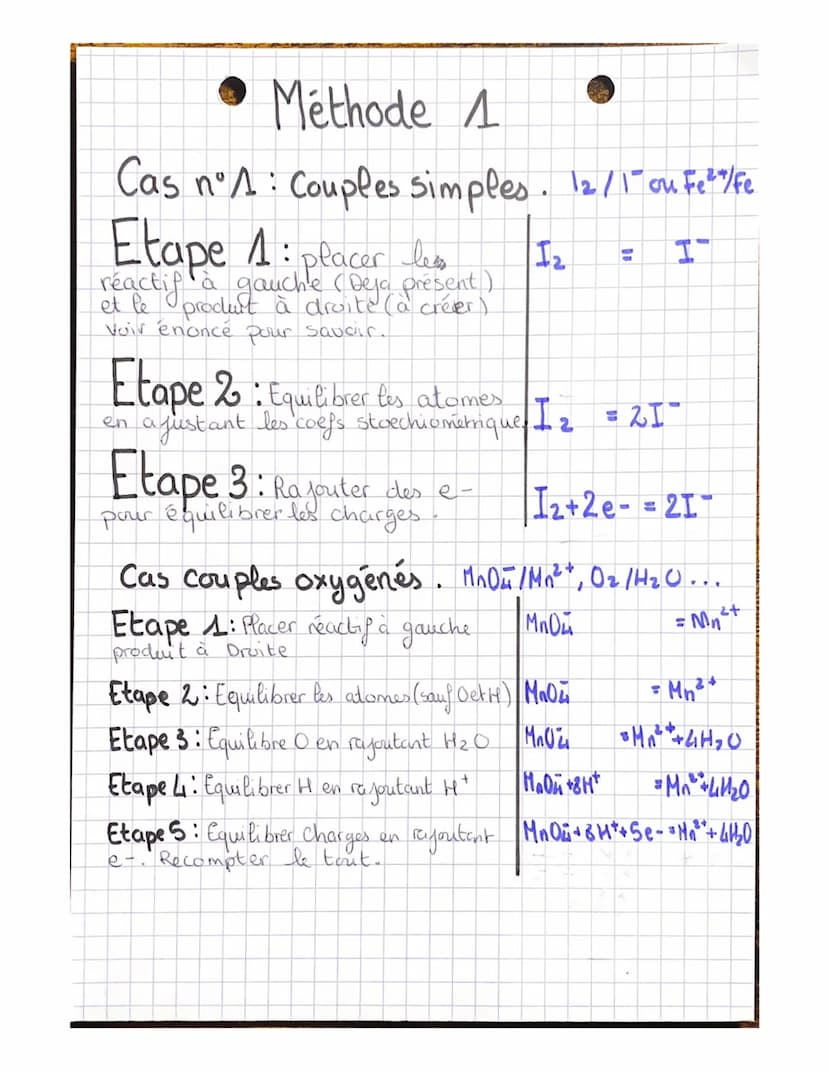 Méthode 1
Cas n°1 : Couples simples. I2/I⁻ ou Fe²⁺/Fe
Etape 1 : placer les
réactif à gauche (Deja présent)
et le produit à droite (à créer)
voir énoncé pour savoir.
I₂ = I⁻
Etape 2 : Equilibrer les atomes
en ajustant les coefs stoechiométrique
I₂ = 2I⁻
Etape 3 : Rajouter des e-
pour équilibrer les charges.
I₂+2e- = 2I⁻
Cas couples oxygénés. MnO₄⁻/Mn²⁺, O₂/H₂O...
Etape 1 : Placer réactif à gauche
produit à Droite
MnO₄⁻ = Mn²⁺
Etape 2 : Equilibrer les atomes (sauf O et H)
MnO₄⁻ = Mn²⁺
Etape 3 : Equilibre O en rajoutant H2O
MnO₄⁻ = Mn²⁺+4H₂O
Etape 4 : Equilibrer H en rajoutant H⁺
MnO₄⁻+8H⁺ = Mn²⁺+4H₂O
Etape 5 : Equilibrer Charges en rajoutant
e-. Recompter le tout.
MnO₄⁻+8H⁺+5e- = Mn²⁺+4H₂O